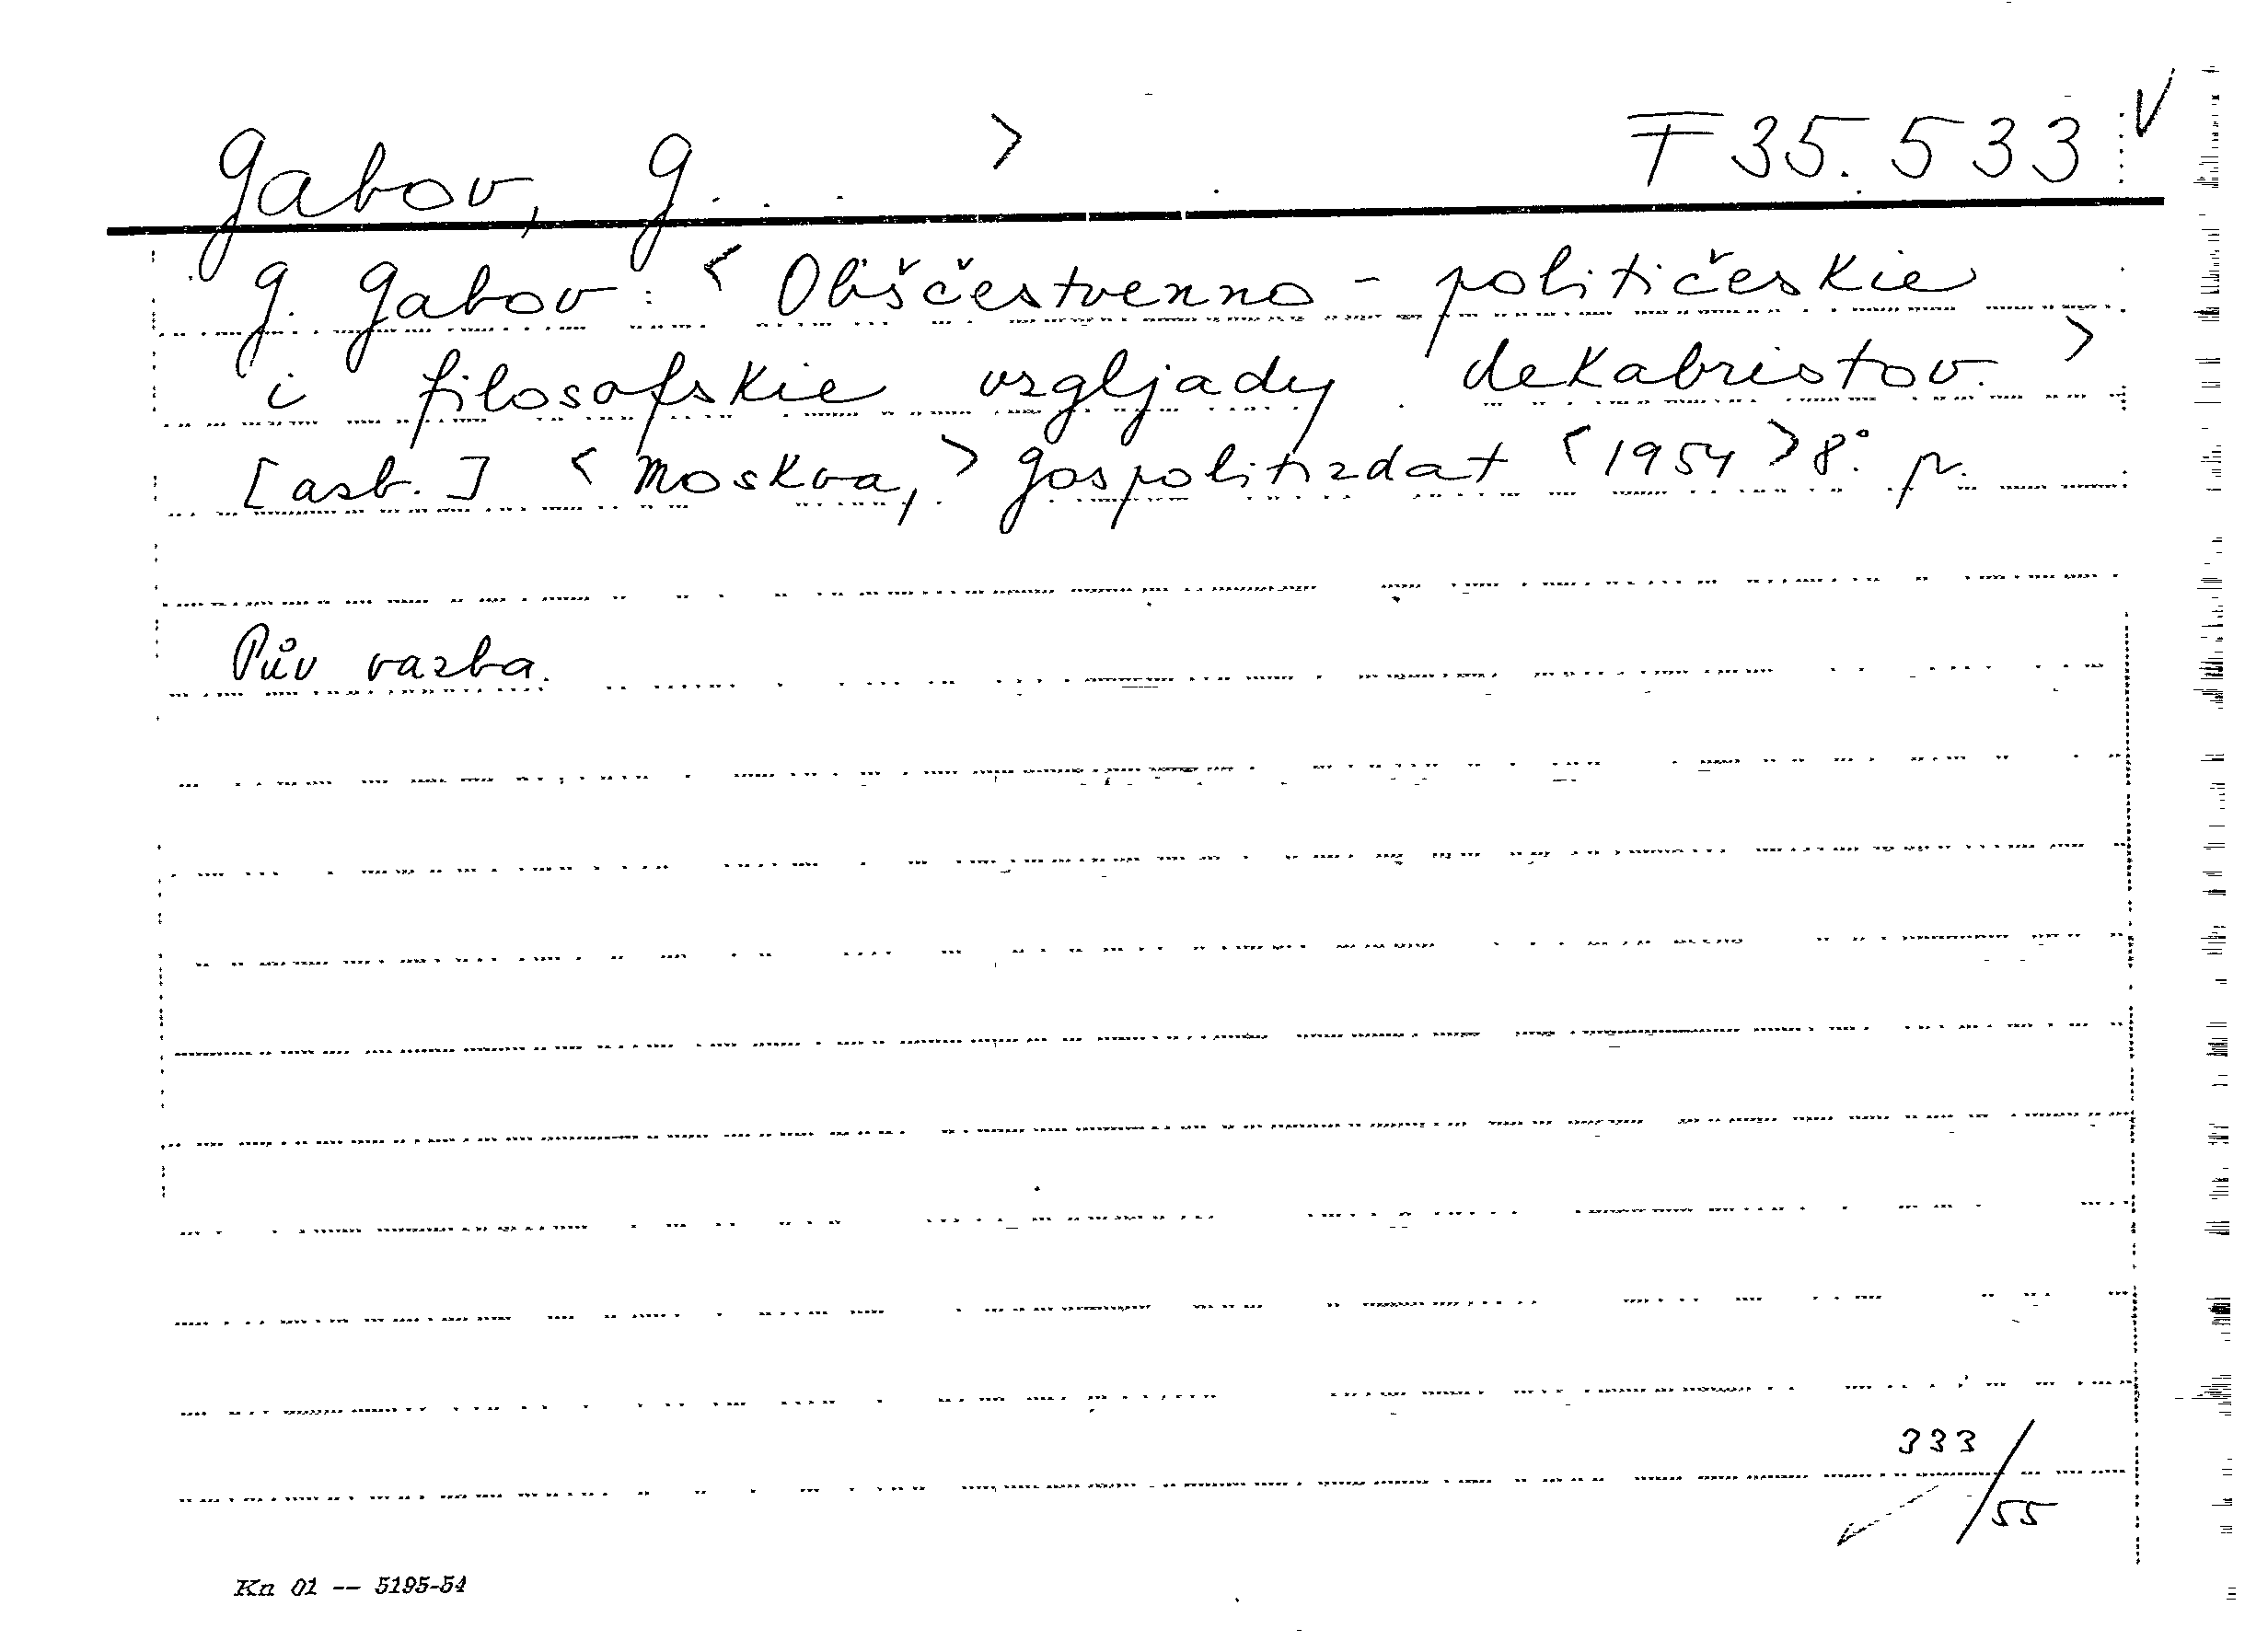 Gabov, G... > F 35.533 V
G. Gabov: < Obščestvenno - političeskie
i filosofskie vzgljady dekabristov. >
[azb.] < Moskva, > Gospolitizdat < 1954 > 8°. pv.
Pův vazba.
333/55
Kn 01 -- 5195-54